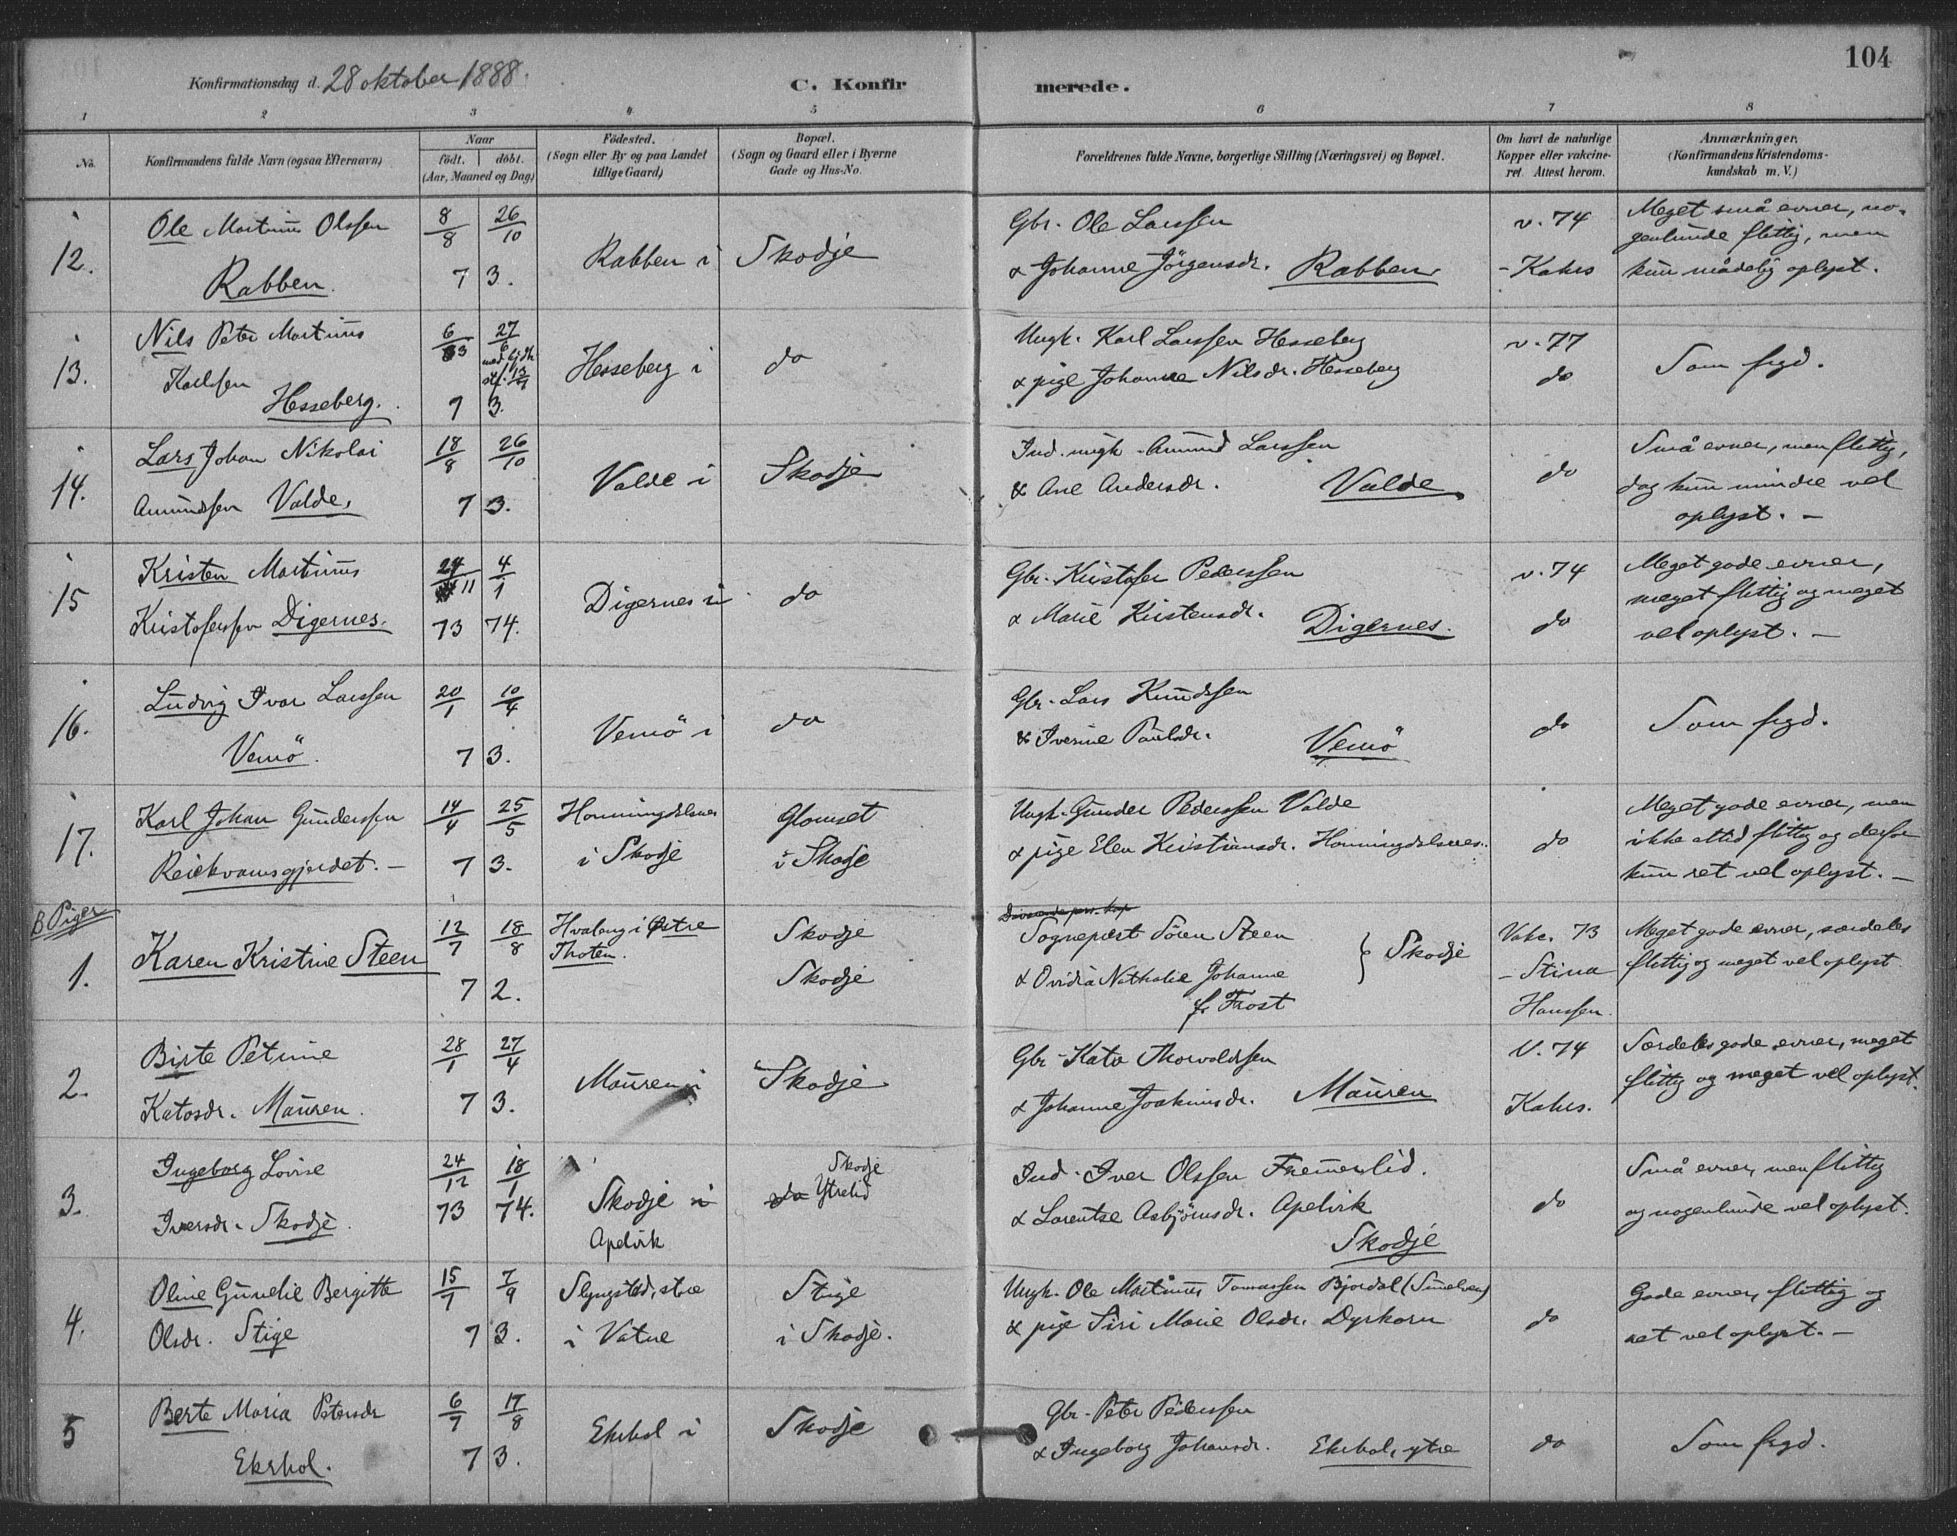 104
Konfirmationsdag d. 28 oktober 1888.
C. Konfirmerede.
1 2 3 4 5 6 7 8
No.
Konfirmandens fulde Navn (ogsaa Efternavn)
Naar
födt. döbt.
(Aar, Maaned og Dag)
Födested.
(Sogn eller By og paa Landet
tillige Gaard)
Bopæl.
(Sogn og Gaard eller i Byerne
Gade og Hus-No.
Forældrenes fulde Navne, borgerlige Stilling (Næringsvei) og Bopæl.
Om havt de naturlige
Kopper eller vakcine-
ret. Attest herom.
Anmærkninger.
(Konfirmandens Kristendoms-
kundskab m. V.)
12.
Ole Martinus Olssen
Rabben.
8/8 26/10
7 3.
Rabben i
Skodje
Gbr. Ole Larssen
& Johanne Jörgensdr. Rabben
v. 74
- Kahrs
Meget små evner, no-
genlunde flittig, men
kun mådelig oplyst.
13.
Nils Peter Martinus
Karlsen
Hesseberg.
6/3 27/6
7 3.
Hesseberg i
do
Ungk. Karl Larssen Hesseberg
& pige Johanne Nilsdr. Hesseberg
v. 77
do
Som frgd.
14.
Lars Johan Nikolai
Amundsen Valde.
18/8 26/10
7 3.
Valde i
Skodje
Ind. ungk. Amund Larssen
& Ane Andersdr. Valde
do
Små evner, men flittig,
dog kun mindre vel
oplyst. -
15
Kristen Martinus
Kristoferssen Digernes.
24/11 4/1
73 74.
Digernes i
do
Gbr. Kristofer Pedersen
& Marie Kristensdr. Digernes.
v. 74
do
Meget gode evner,
meget flittig og meget
vel oplyst. -
16.
Ludvig Ivar Larssen
Vemö.
20/1 10/4
7 3.
Vemö i
do
Gbr. Lars Knudssen
& Iverine Paulsdr. Vemö
do
Som frgd.
17.
Karl Johan Gunderssen
Reiekvamsgjerdet. -
14/4 25/5
7 3.
Honningdalsnes
i Skodje
Glomset
i Skodje
Ungk. Gunder Pedersen Valde
& pige Elen Kristiansdr. Honningdalsnes.
do
Meget gode evner, men
ikke altid flittig og derfor
kun ret vel oplyst. -
B Piger
1.
Karen Kristine Steen
12/7 18/8
7 2.
Hvalbng i Östre
Thoten.
Skodje
Skodje
Sogneprest Sören Steen
& Ovidia Nathalie Johanne
f. Frost } Skodje
Vakc. 73
- Stina
Hanssen.
Meget gode evner, særdeles
flittig og meget vel oplyst
2.
Birte Petrine
Katosdr. Mauren.
28/1 27/4
7 3.
Mauren i
Skodje
Gbr. Kato Thorvaldsen
& Johanne Joakimsdr. Mauren
V. 74
Kahrs.
Særdeles gode evner, meget
flittig og meget vel oplyst.
3.
Ingeborg Lovise
Iversdr. Skodje.
24/12 18/1
73 74.
Skodje i
Apelvik
Skodje
do Ytrelid
Ind. Iver Olssen Fremmerlid.
& Lorentse Asbjörnsdr. Apelvik
Skodje
do
Små evner, men flittig
og nogenlunde vel oplyst.
4.
Oline Gunelie Bergitte
Olsdr. Stige
15/7 7/9
7 3.
Slyngstad, store
i Vatne
Stige
i Skodje.
Ungk. Ole Martinus Tomassen Bjordal (Smelven)
& pige Siri Marie Olsdr. Dyrkorn
do
Gode evner, flittig og
ret vel oplyst. -
5
Berte Maria Petersdr
Ekrhol.
6/7 17/8
7 3.
Ekrhol i
Skodje
Gbr. Peter Pederssen
& Ingeborg Johansdr. Ekrhol, ytre
do
Som frgd.